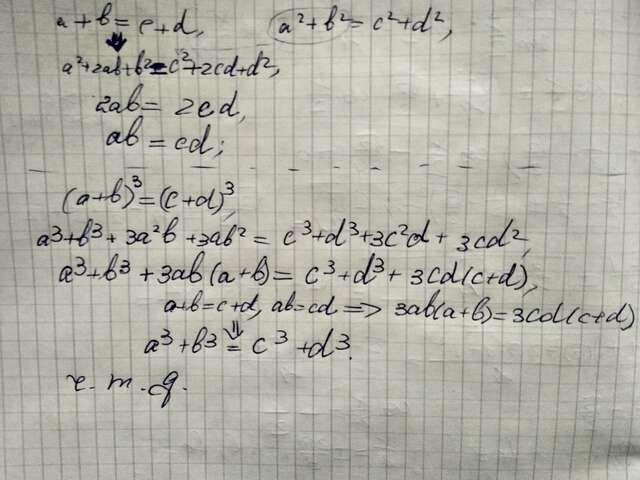 a+b=c+d, a²+b²=c²+d²,
⇓
a²+2ab+b²=c²+2cd+d²,
2ab=2cd,
ab=cd;
(a+b)³=(c+d)³,
a³+b³+3a²b+3ab²=c³+d³+3c²d+3cd²,
a³+b³+3ab(a+b)=c³+d³+3cd(c+d),
a+b=c+d, ab=cd=>3ab(a+b)=3cd(c+d)
⇓
a³+b³=c³+d³.
ч.т.д.